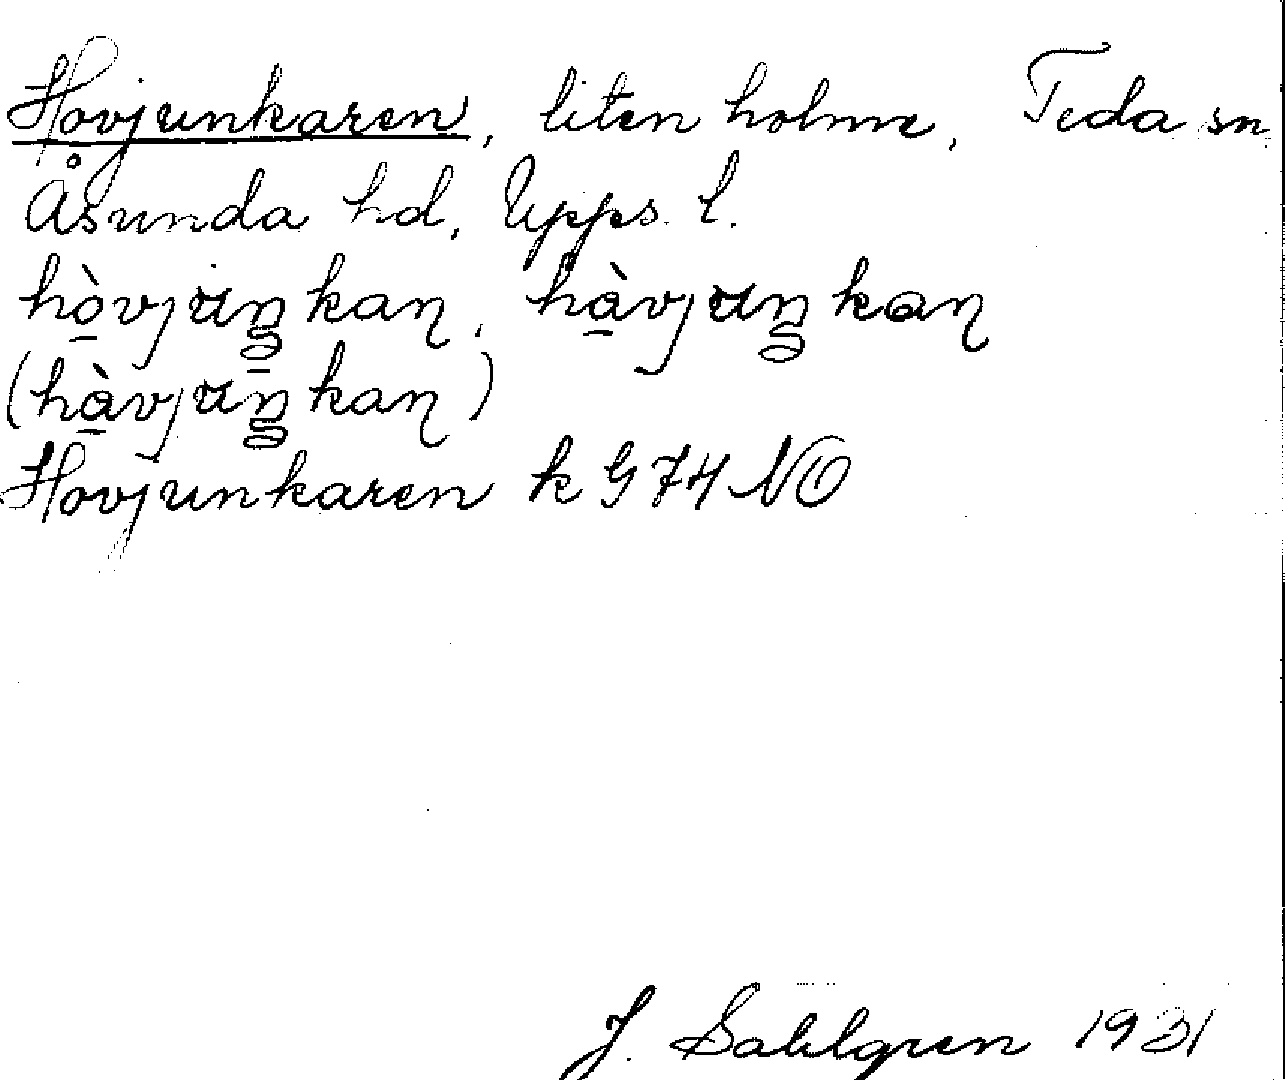 Hovjunkaren, liten holme, Teda sn
Åsunda hd, Upps. l.
hò̠vjuŋkaɳ, hà̠vjuŋkaɳ
(hà̠vjuŋkaɳ)
Hovjunkaren k G 74 NO
J. Sahlgren 1931